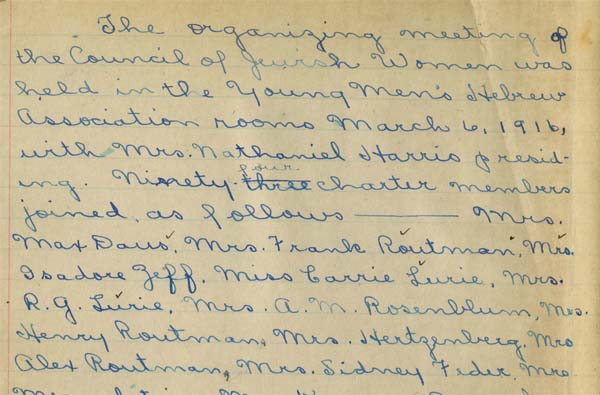 The organizing meeting of
the Council of Jewish Women was
held in the Young Men's Hebrew
Association rooms March 6, 1916,
with Mrs. Nathaniel Harris presid-
ing. Ninety-three four charter members
joined, as follows —— Mrs.
Max Daus, Mrs. Frank Routman, Mrs.
Isadore Zeff, Miss Carrie Lurie, Mrs.
R. G. Lurie, Mrs. A. M. Rosenblum, Mrs.
Henry Routman, Mrs. Hertzenberg, Mrs
Alex Routman, Mrs. Sidney Feder, Mrs.